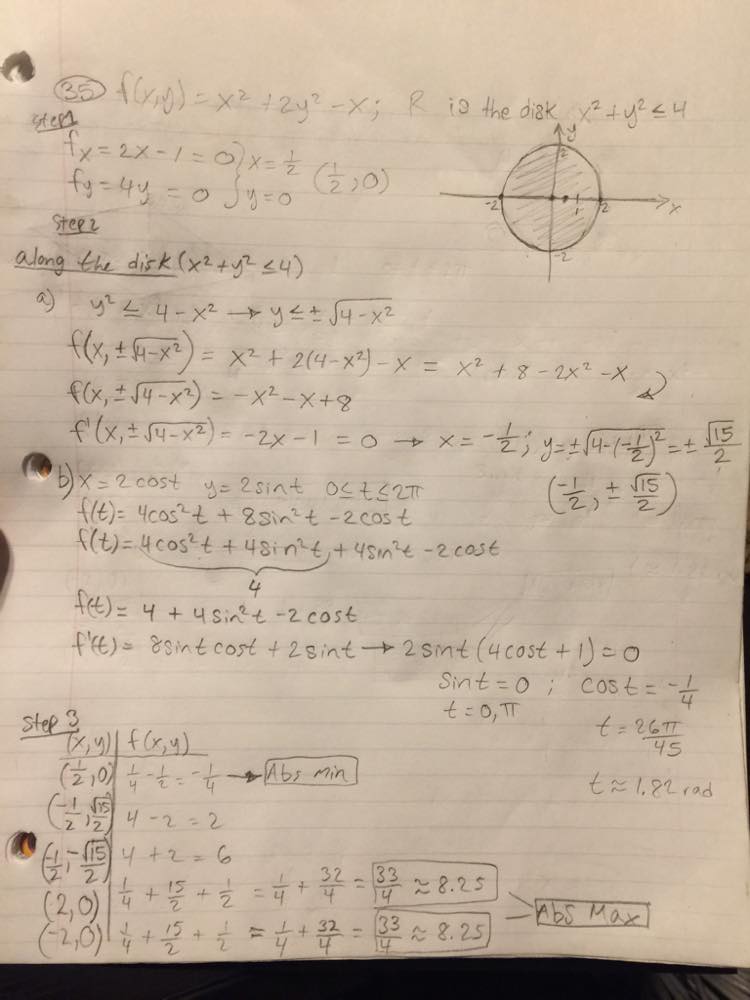 35 f(x,y) = x² + 2y² - x ; R is the disk x² + y² ≤ 4
Step 1
fx = 2x - 1 = 0 } x = 1/2
fy = 4y = 0 } y = 0 (1/2, 0)
y
2
-2 1 2 x
-2
Step 2
along the disk (x² + y² ≤ 4)
a) y² ≤ 4 - x² → y ≤ ± √(4-x²)
f(x, ±√(4-x²)) = x² + 2(4-x²) - x = x² + 8 - 2x² - x
f(x, ±√(4-x²)) = -x² - x + 8
f'(x, ±√(4-x²)) = -2x - 1 = 0 → x = -1/2 ; y = ±√(4-(-1/2)²) = ± √15/2
(-1/2, ± √15/2)
b) x = 2cost y = 2sint 0 ≤ t ≤ 2π
f(t) = 4cos²t + 8sin²t - 2cost
f'(t) = 4cos²t + 4sin²t + 4sin²t - 2cost
4
f(t) = 4 + 4sin²t - 2cost
f'(t) = 8sintcost + 2sint → 2sint(4cost + 1) = 0
sint = 0 ; cost = -1/4
t = 0, π t = 26π/45
t ≈ 1.82 rad
Step 3
(x,y) | f(x,y)
(1/2, 0) 1/4 - 1/2 = -1/4 → Abs Min
(-1/2, √15/2) 4 - 2 = 2
(-1/2, -√15/2) 4 + 2 = 6
(2,0) 1/4 + 15/2 + 1/2 = 1/4 + 32/4 = 33/4 ≈ 8.25
(-2,0) 1/4 + 15/2 + 1/2 = 1/4 + 32/4 = 33/4 ≈ 8.25
Abs Max